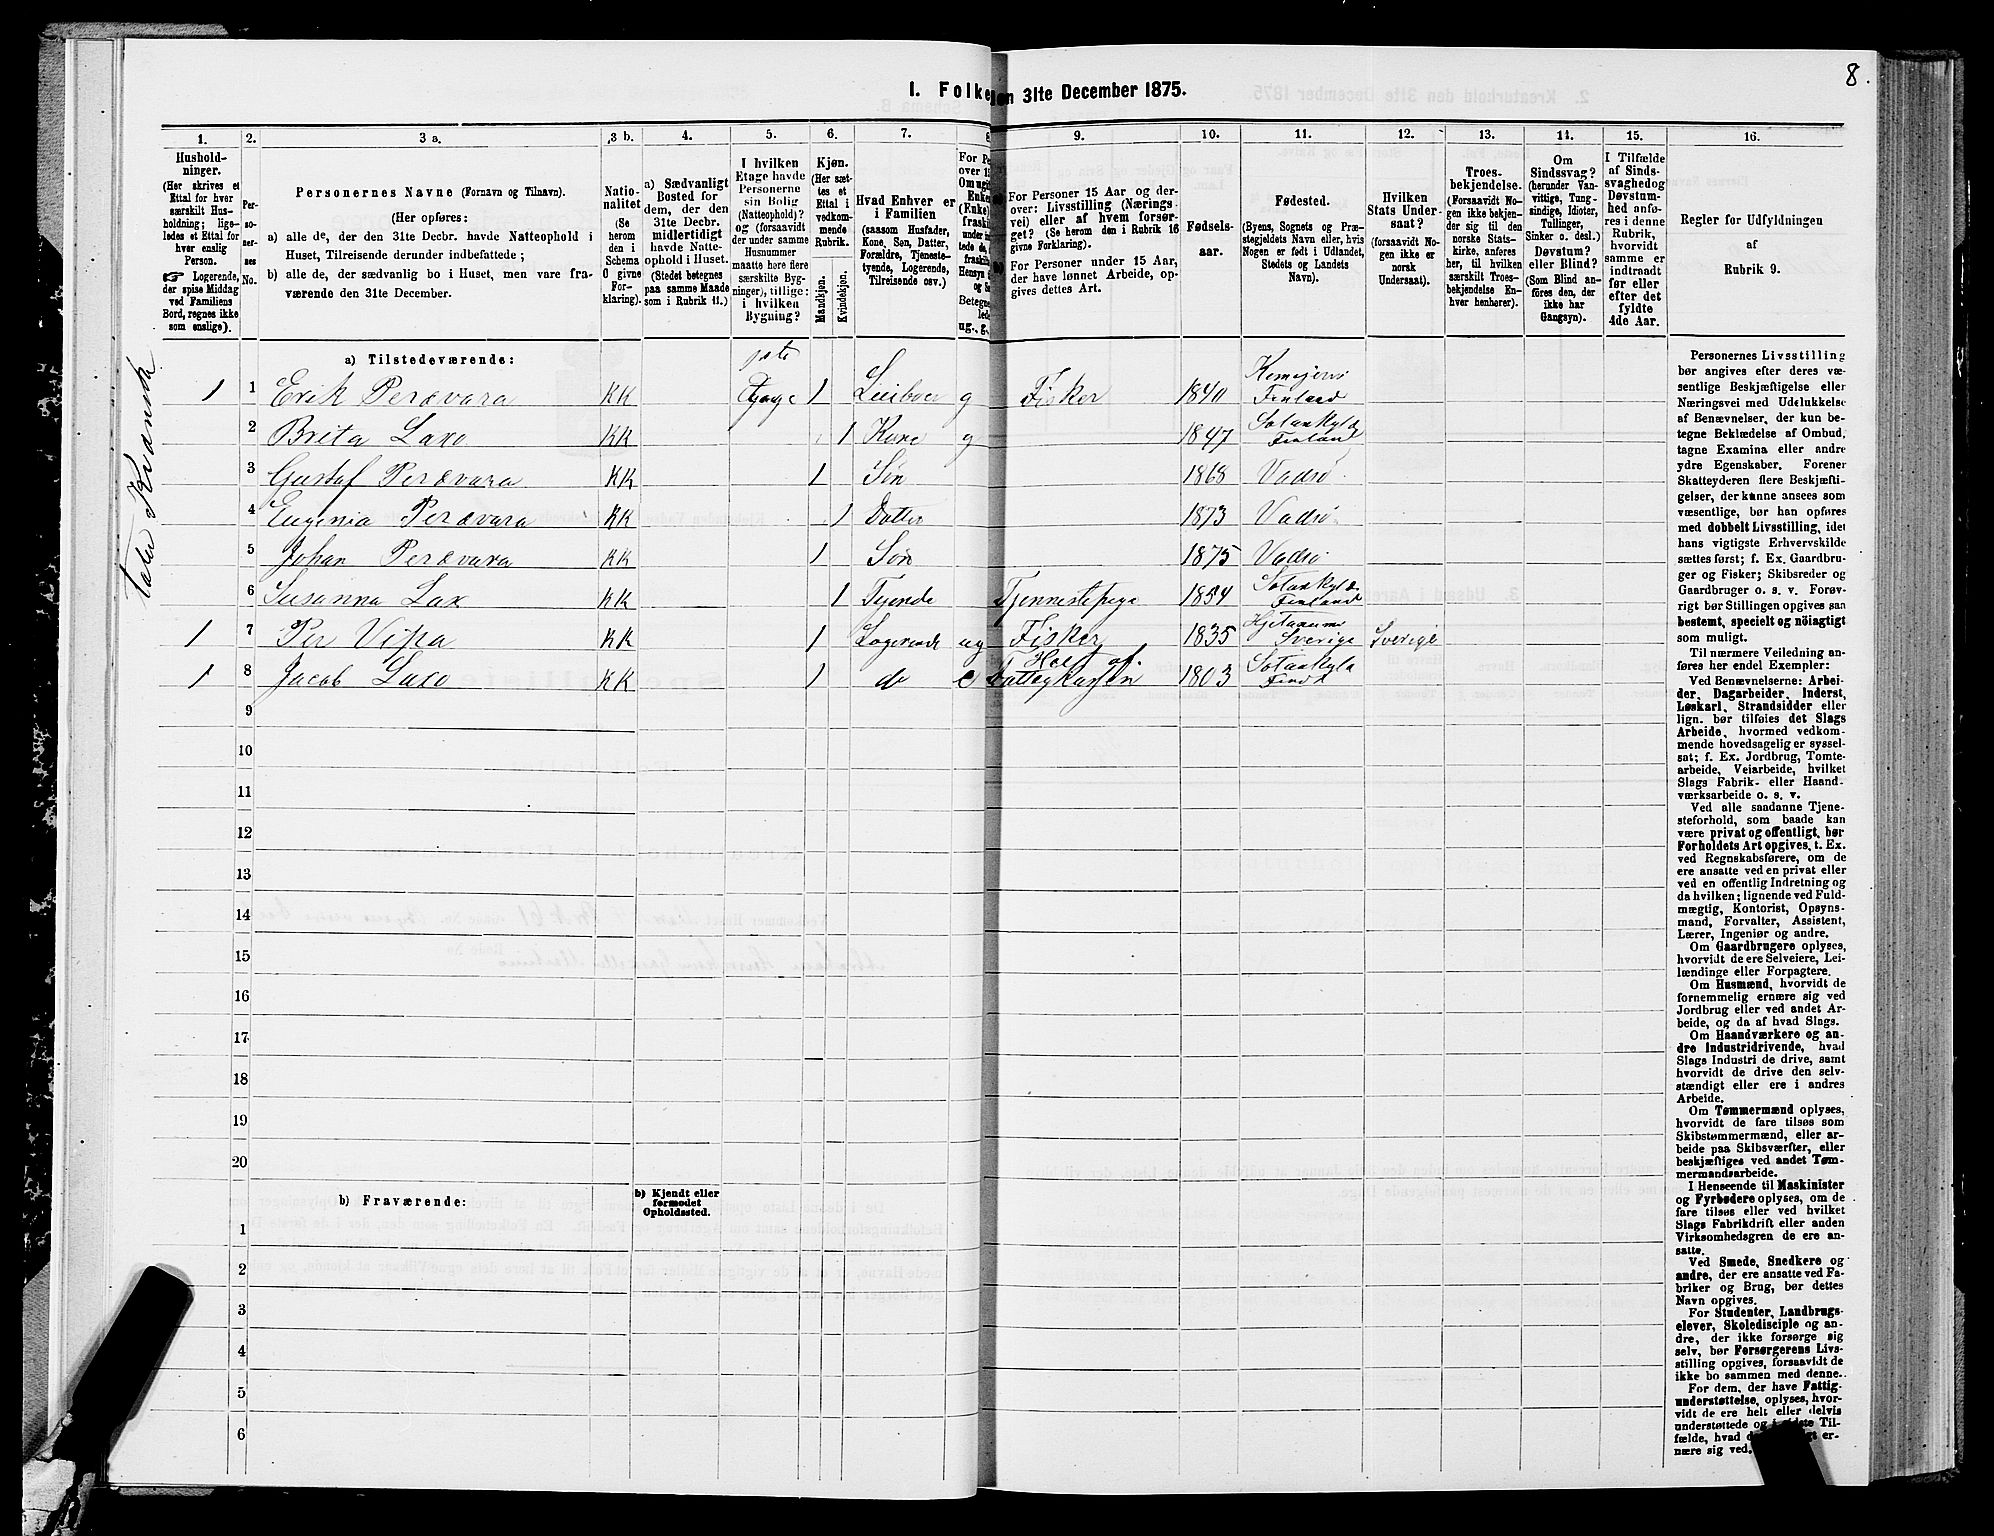 8.
I. Folke
den 31te December 1875.
1. 2. 3 a. 3 b. 4. 5. 6. 7. 8 9. 10. 11. 12. 13. 14. 15. 16.
Hushold-
ninger.
(Her skrives et
Ettal for hver
særskilt Hus-
holdning; lige-
ledes et Ettal for
hver enslig
Person.
☞ Logerende,
der spise Middag
ved Familiens
Bord, regnes ikke
som enslige).
Per-
so-
ner-
nes
No.
Personernes Navne (Fornavn og Tilnavn).
(Her opføres:
a) alle de, der den 31te Decbr. havde Natteophold i
Huset, Tilreisende derunder indbefattede;
b) alle de, der sædvanlig bo i Huset, men vare fra-
værende den 31te December.
Natio-
nalitet
(Se
herom
den i
Schema
O givne
For-
klaring).
a) Sædvanligt
Bosted for
dem, der den
31te Decbr.
midlertidigt
havde Natte-
ophold i Huset.
(Stedet betegnes
paa samme Maade
som i Rubrik 11.)
I hvilken
Etage havde
Personerne
sin Bolig
(Natteophold)?
og (forsaavidt
der under samme
Husnummer
maatte høre flere
særskilte Byg-
ninger), tillige:
i hvilken
Bygning?
Kjøn.
(Her sæt-
tes et
Ettal i
vedkom-
mende
Rubrik.
Mandkjøn.
Kvindekjøn.
Hvad Enhver er
i Familien
(saasom Husfader,
Kone, Søn, Datter,
Forældre, Tjeneste-
tyende, Logerende,
Tilreisende osv.)
For Pe
over 1
Om ugi
Enke
(Enke)
under in
tede da
fraskil
Hensyn
og S
Betegne
lede
ug., g.,
For Personer 15 Aar og der-
over: Livsstilling (Nærings-
vei) eller af hvem forsør-
get? (Se herom den i Rubrik 16
givne Forklaring).
For Personer under 15 Aar,
der have lønnet Arbeide, op-
gives dettes Art.
Fødsels-
aar.
Fødested.
(Byens, Sognets og Præ-
stegjeldets Navn eller, hvis
Nogen er født i Udlandet,
Stedets og Landets
Navn).
Hvilken
Stats Under-
saat?
(forsaavidt No-
gen ikke er
norsk
Undersaat).
Troes-
bekjendelse.
(Forsaavidt No-
gen ikke bekjen-
der sig til den
norske Stats-
kirke, anføres
her, til hvilken
særskilt Troes-
bekjendelse En-
hver henhører).
Om
Sindssvag?
(herunder Van-
vittige, Tung-
sindige, Idioter,
Tullinger,
Sinker o. desl.)
Døvstum?
eller Blind?
(Som Blind an-
føres den, der
ikke har
Gangsyn).
I Tilfælde
af Sinds-
svaghed og
Døvstum-
hed anfø-
res i denne
Rubrik,
hvorvidt
samme er
indtraadt
før eller
efter det
fyldte
4de Aar.
Regler for Udfyldningen
af
Rubrik 9.
a) Tilstedeværende:
taler Kvænsk
1 1 Erik Perævara KK 1ste Etage 1 Leiboer g Fisker 1840 Kemijervi Finland
2 Brita Laxo KK 1 Kone g 1847 Sotankylæ Finland
3 Gustaf Perævara KK 1 Søn 1868 Vadsø
4 Eugenia Perævara KK 1 Datter 1873 Vadsø
5 Johan Perævara KK 1 Søn 1875 Vadsø
6 Susanna Lax KK 1 Tjende Tjennestepige 1854 Sotankylæ Finland
1 7 Per Vipa KK 1 Logerende ug Fisker 1835 Sverige Sverige
1 8 Jacob Laxo KK 1 do e af Fattigkassen 1803 Sotankyla Finld
9
10
11
12
13
14
15
16
17
18
19
20
b) Fraværende:
b) Kjendt eller
formodet
Opholdssted.
1
2
3
4
5
6
Personernes Livsstilling
bør angives efter deres væ-
sentlige Beskjæftigelse eller
Næringsvei med Udelukkelse
af Benævnelser, der kun be-
tegne Beklædelse af Ombud,
tagne Examina eller andre
ydre Egenskaber. Forener
Skatteyderen flere Beskjæfti-
gelser, der kunne ansees som
væsentlige, bør han opføres
med dobbelt Livsstilling, idet
hans vigtigste Erhvervskilde
sættes først; f. Ex. Gaardbru-
ger og Fisker; Skibsreder og
Gaardbruger o. s. v. Forøv-
rigt bør Stillingen opgives saa
bestemt, specielt og nöiagtigt
som muligt.
Til nærmere Veiledning an-
føres her endel Exempler:
Ved Benævnelserne: Arbei-
der, Dagarbeider, Inderst,
Løskarl, Strandsidder eller
lign. bør tilføies det Slags
Arbeide, hvormed vedkom-
mende hovedsagelig er syssel-
sat; f. Ex. Jordbrug, Tomte-
arbeide, Veiarbeide, hvilket
Slags Fabrik- eller Haand-
værksarbeide o. s. v.
Ved alle saadanne Tjene-
steforhold, som baade kan
være privat og offentligt, bør
Forholdets Art opgives, t. Ex.
ved Regnskabsførere, om de
ere ansatte ved en privat eller
ved en offentlig Indretning og
da hvilken; lignende ved Fuld-
mægtig, Kontorist, Opsyns-
mand, Forvalter, Assistent,
Lærer, Ingeniør og andre.
Om Gaardbrugere oplyses,
hvorvidt de ere Selveiere, Lei-
lændinge eller Forpagtere.
Om Husmænd, hvorvidt de
fornemmelig ernære sig ved
Jordbrug eller ved andet Ar-
beide, og da af hvad Slags.
Om Haandværkere og an-
dre Industridrivende, hvad
Slags Industri de drive, samt
hvorvidt de drive den selv-
stændigt eller ere i andres
Arbeide.
Om Tømmermænd oplyses,
hvorvidt de fare tilsøs som
Skibstømmermænd, eller ar-
beide paa Skibsværfter, eller
beskjæftiges ved andet Tøm-
mermandsarbeide.
I Henseende til Maskinister
og Fyrbødere oplyses, om de
fare tilsøs eller ved hvilket
Slags Fabrikdrift eller anden
Virksomhedsgren de ere an-
satte.
Ved Smede, Snedkere og
andre, der ere ansatte ved Fa-
briker og Brug, bør dettes
Navn opgives.
For Studenter, Landbrugs-
elever, Skoledisciple og an-
dre, der ikke forsørge sig
selv, bør Forsørgerens Livs-
stilling opgives, forsaavidt de
ikke bo sammen med denne.
For dem, der have Fattig-
understøttelse, oplyses, hvor-
vidt de ere helt eller delvis
understøttede og i sidste Til-
fælde, hvad d gt er-
nære sig ved.